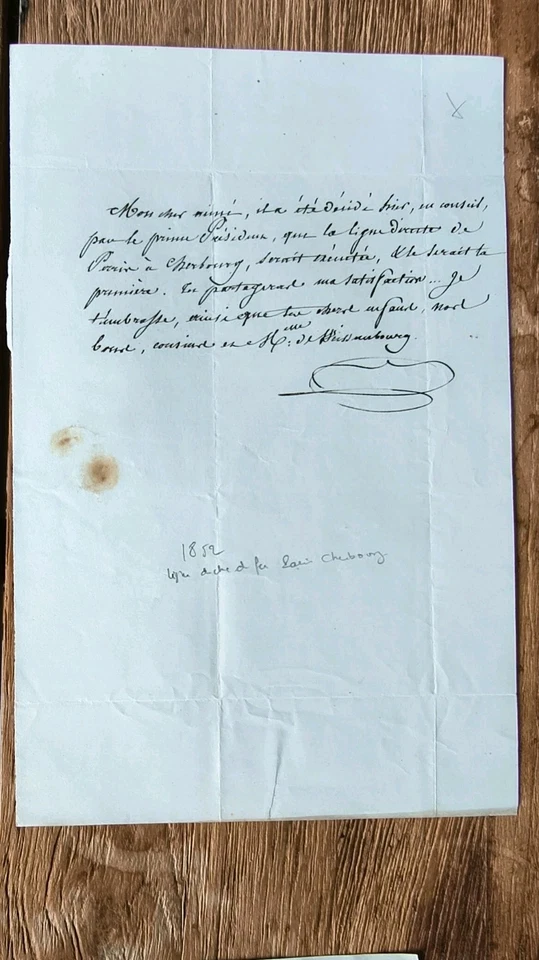 Mon cher aimé, il a été décidé hier, en conseil,
par le prince Président, que la ligne directe de
Paris à Cherbourg, serait exécutée, & le serait la
première. Tu partageras ma satisfaction... Je
t'embrasse, ainsi que ton cher enfant, nos
bons cousins et Mme. de
1852
ligne de ch de fer Paris Cherbourg